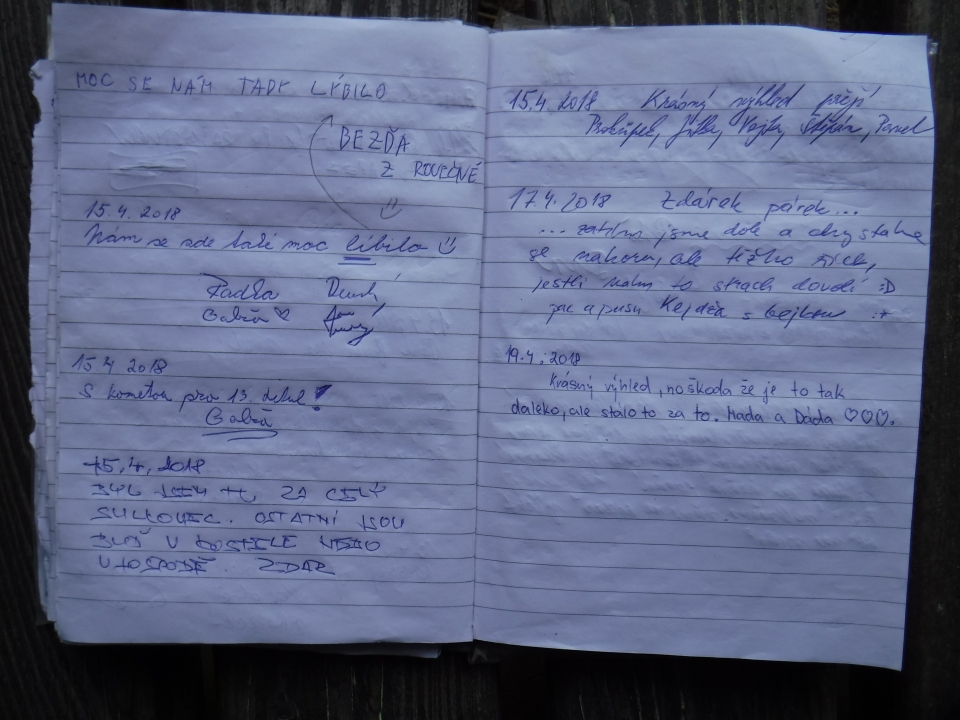 MOC SE NÁM TADY LÝBILO
BEZĎA
Z ROVEČNÉ
15.4.2018
Nám se zde také moc líbilo
Radka
Gabča ♡
15.4 2018
S kometou pro 13. titul!
Gabča
15.4.2018
BYL JSEM TU ZA CELÝ
SULKOVEC. OSTATNÍ JSOU
BUĎ V KOSTELE NEBO
V HOSPODĚ. ZDAR
15.4.2018 Krásný výhled přejí
Prokůpek, Jitka, Vojta, Štěpán, Pavel
17.4.2018 Zdárek párek...
... zatím jsme dole a chystáme
se nahoru, ale těžko říct,
jestli nám to strach dovolí :D
pac a pusu Kejdža s bejbou :*
19.4.2018
Krásný výhled, no škoda že je to tak
daleko, ale stálo to za to. Maďa a Dáda ♡♡♡.